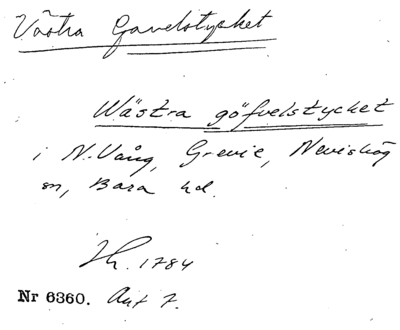 Västra Gavelstycket
Wästra göfvelstycket
i N. Vång, Grevie, Nevishög
sn, Bara hd.
Lh. 1784
Nr 6360. Akt 7.